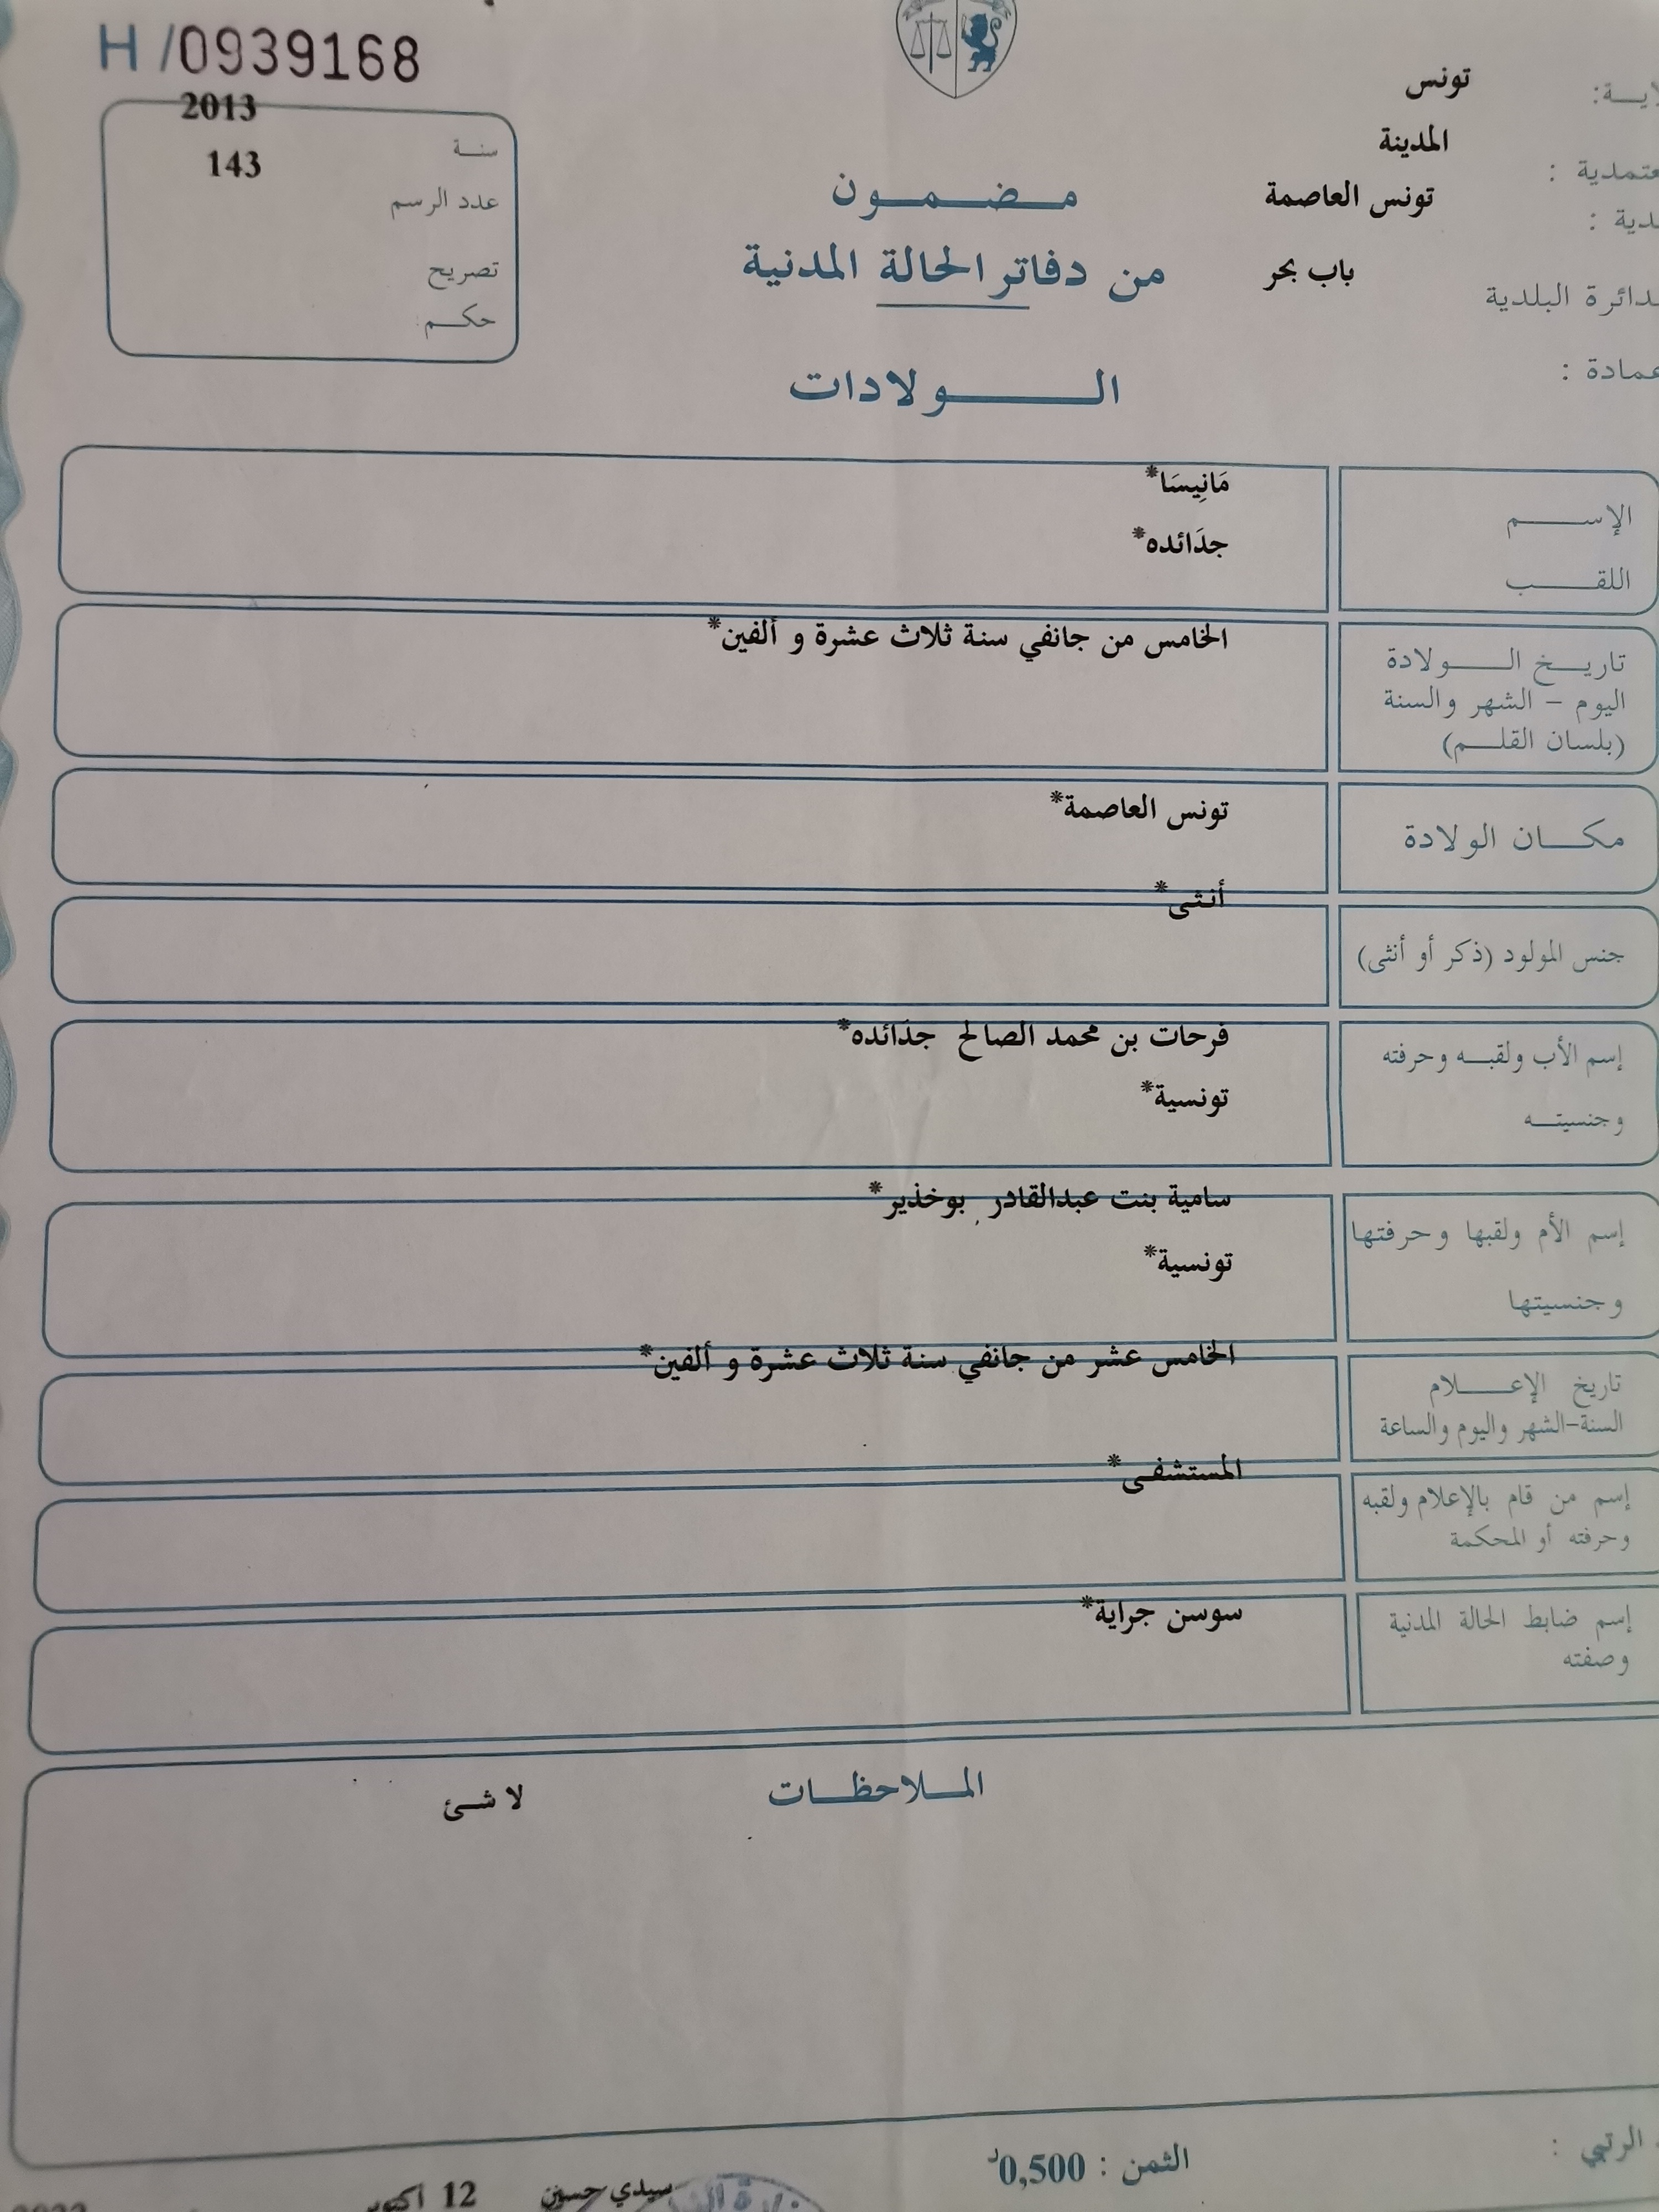 H /0939168
2013
سنة
143
عدد الرسم
تصريح
حكم
تونس
المدينة
تونس العاصمة
باب بحر
الدائرة البلدية
مضمون
من دفاتر الحالة المدنية
الولادات
الإسم
مَانِيسَا*
اللقب
جدَائده*
تاريخ الولادة
اليوم - الشهر والسنة
(بلسان القلم)
الخامس من جانفي سنة ثلاث عشرة و ألفين*
مكان الولادة
تونس العاصمة*
جنس المولود (ذكر أو أنثى)
أنثى*
إسم الأب ولقبه وحرفته
فرحات بن محمد الصالح جدَائده*
وجنسيته
تونسية*
إسم الأم ولقبها وحرفتها
سامية بنت عبدالقادر بوخذير*
وجنسيتها
تونسية*
تاريخ الإعلام
السنة-الشهر واليوم والساعة
الخامس عشر من جانفي سنة ثلاث عشرة و ألفين*
إسم من قام بالإعلام ولقبه
وحرفته أو المحكمة
المستشفى*
إسم ضابط الحالة المدنية
وصفته
سوسن جراية*
الملاحظات
لا شئ
الرتبي :
الثمن : 0,500د
سيدي حسين
12 اكتوبر